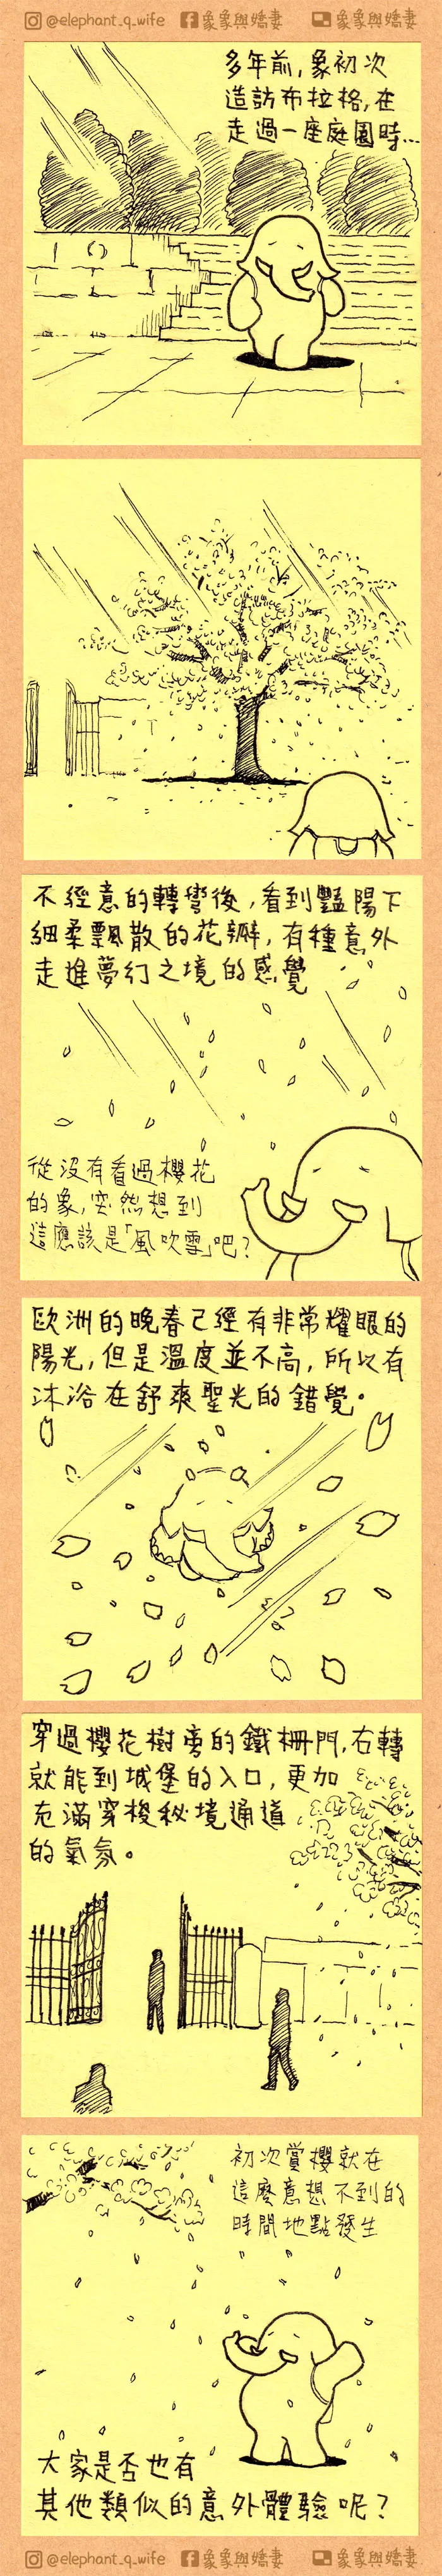 @elephant_q_wife 象象與嬌妻 象象與嬌妻
多年前,象初次
造訪布拉格,在
走過一座庭園時...
不經意的轉彎後,看到豔陽下
細柔飄散的花瓣,有種意外
走進夢幻之境的感覺
從沒有看過櫻花
的象,突然想到
這應該是「風吹雪」吧?
歐洲的晚春已經有非常耀眼的
陽光,但是溫度並不高,所以有
沐浴在舒爽聖光的錯覺。
穿過櫻花樹旁的鐵柵門,右轉
就能到城堡的入口,更加
充滿穿梭秘境通道
的氣氛。
初次賞櫻就在
這麼意想不到的
時間地點發生
大家是否也有
其他類似的意外體驗呢?
@elephant_q_wife 象象與嬌妻 象象與嬌妻